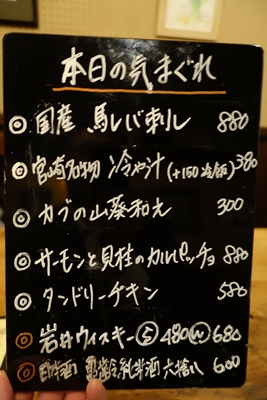 本日の気まぐれ
◎国産 馬レバ刺し 880
◎宮崎名物 冷や汁(+150冷飯) 380
◎カブの山葵和え 300
◎サーモンと貝柱のカルパッチョ 880
◎タンドリーチキン 580
◎岩井ウィスキー Ⓢ480 Ⓦ680
◎日本酒 鶴齢 純米酒 六拾八 600